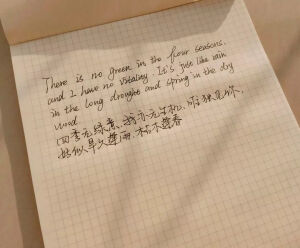 There is no green in the four seasons.
and I have no vitality. It's just like rain
in the long drought and spring in the dry
wood
四季无绿意,我亦无生机,唯独见你,
恰似旱久逢雨,枯木逢春